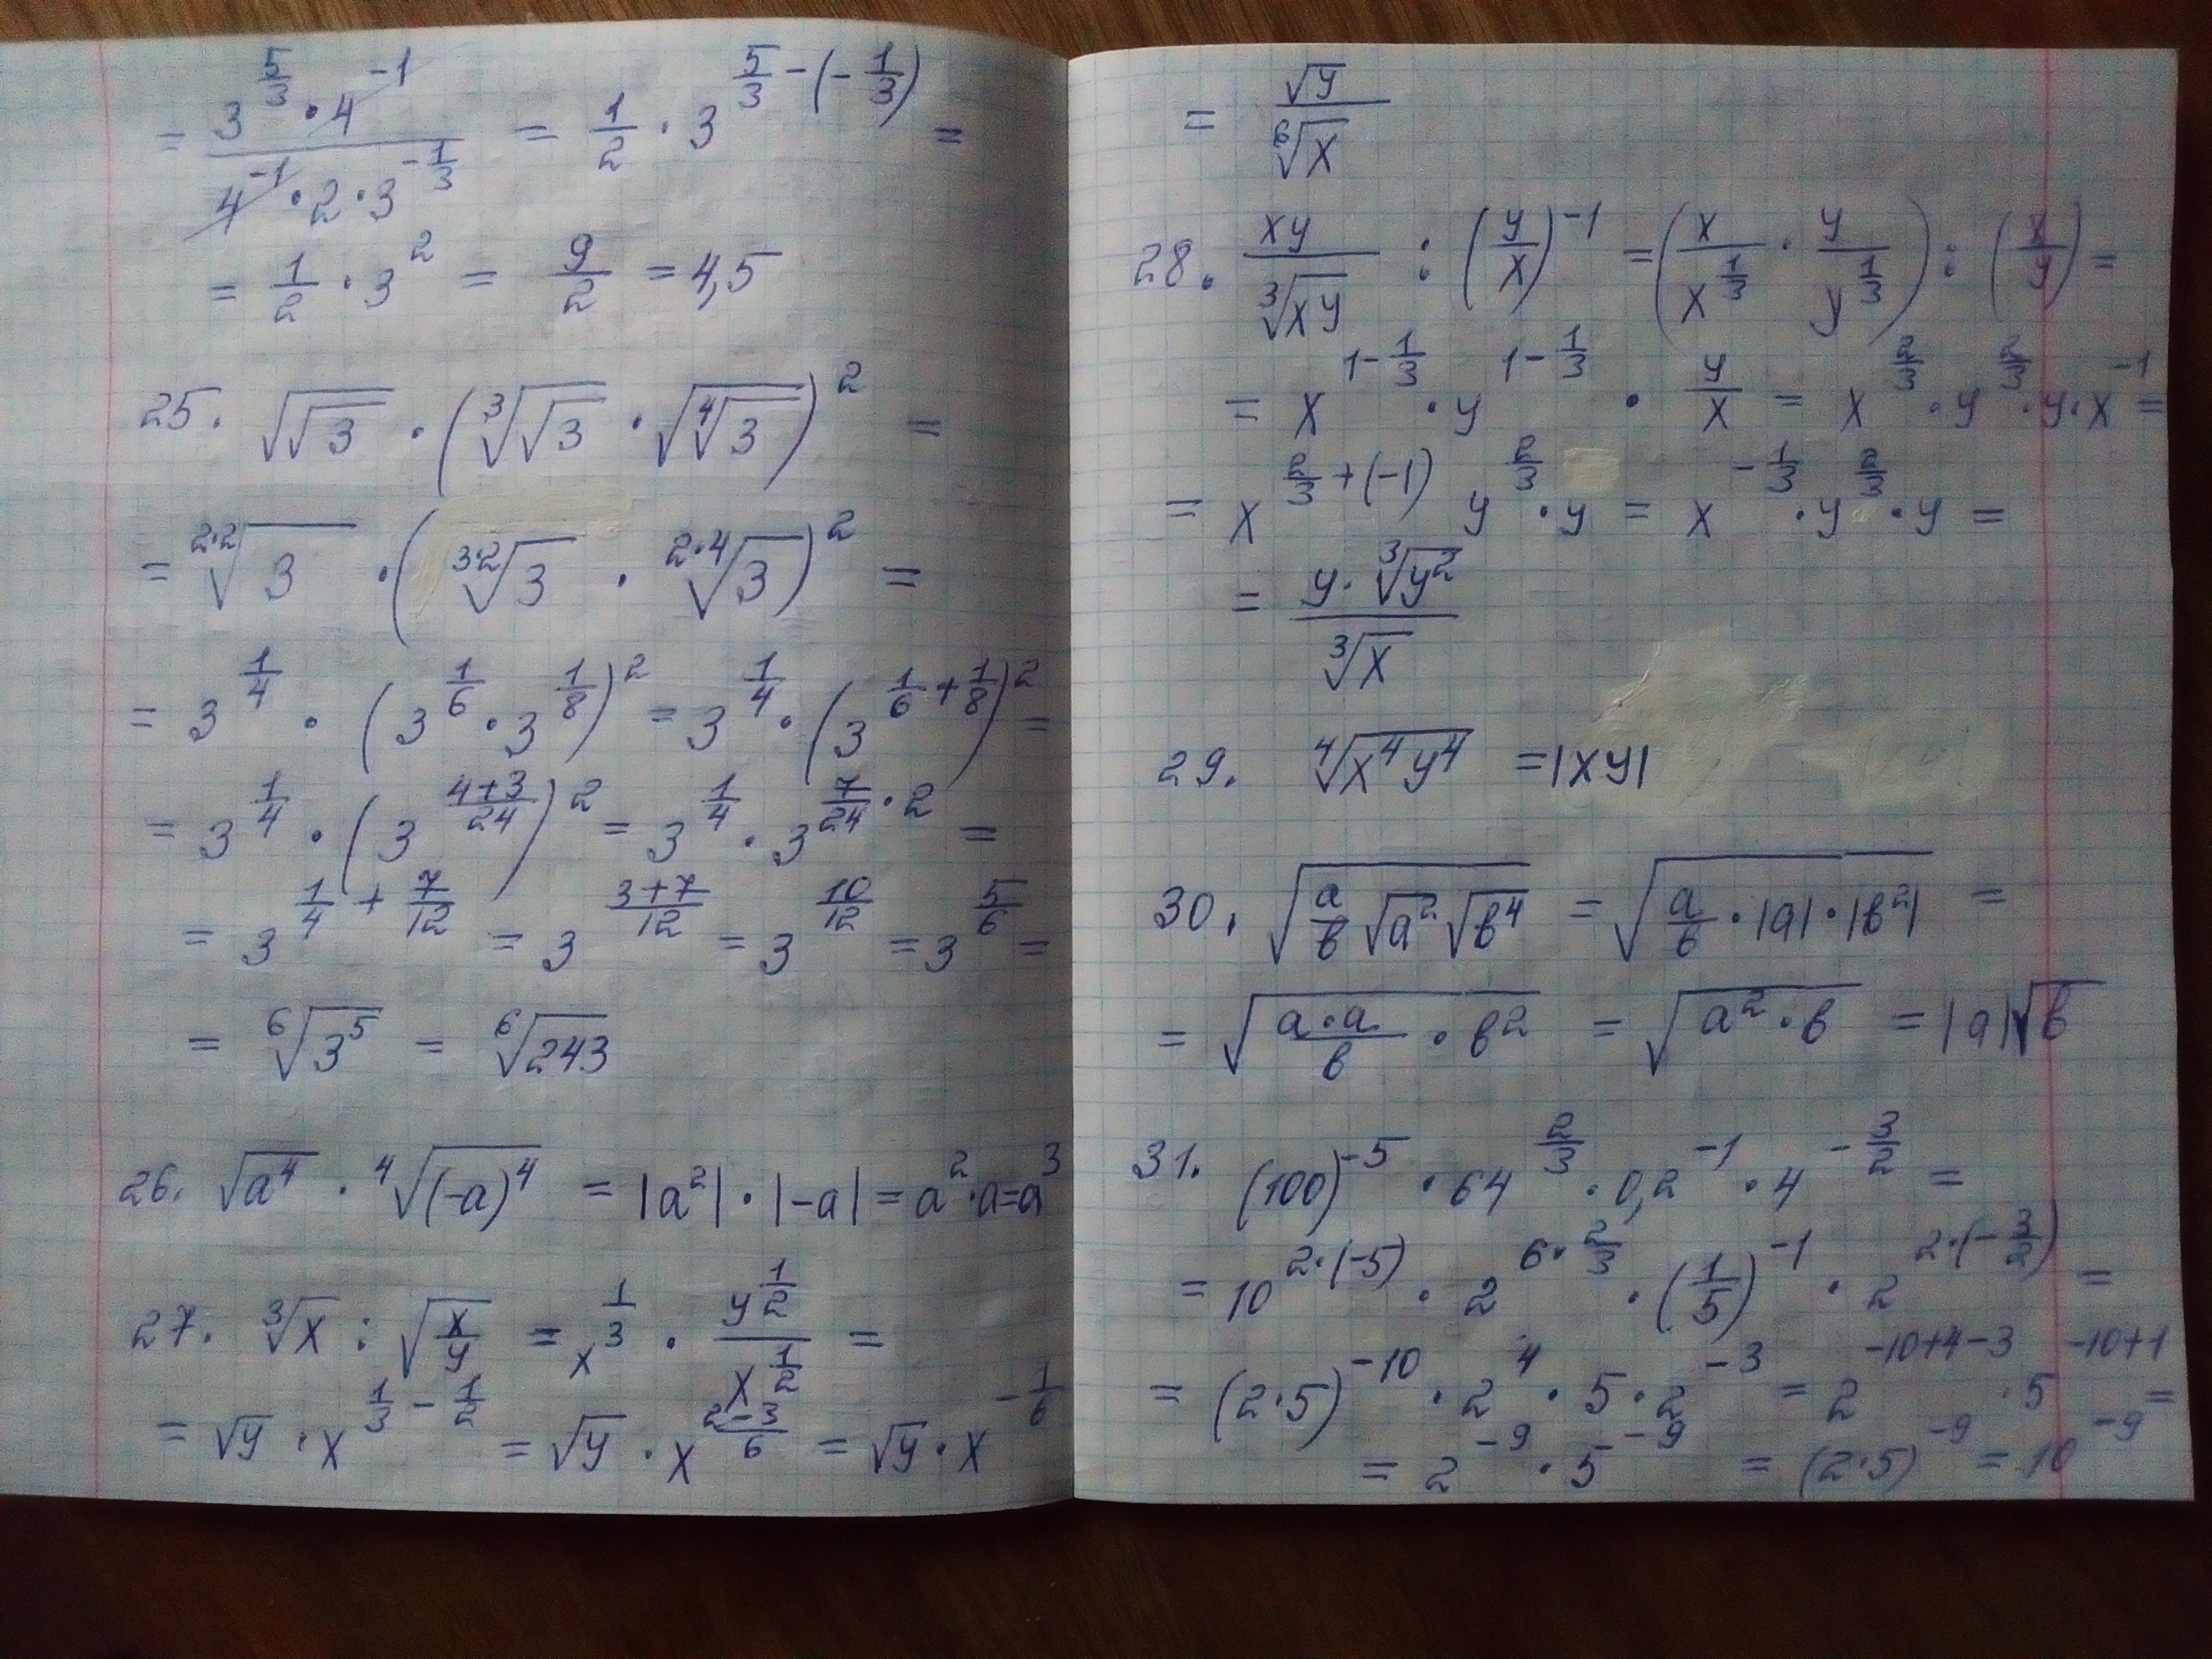 = (3^(5/3) · 4^(-1)) / (4^(-1) · 2 · 3^(-1/3)) = 1/2 · 3^(5/3 - (-1/3)) =
= 1/2 · 3^2 = 9/2 = 4,5
25. √√3 · (∛√3 · √∜3)^2 =
= ^(2·2)√3 · (^(3·2)√3 · ^(2·4)√3)^2 =
= 3^(1/4) · (3^(1/6) · 3^(1/8))^2 = 3^(1/4) · (3^(1/6 + 1/8))^2 =
= 3^(1/4) · (3^((4+3)/24))^2 = 3^(1/4) · 3^(7/24 · 2) =
= 3^(1/4 + 7/12) = 3^((3+7)/12) = 3^(10/12) = 3^(5/6) =
= ^6√(3^5) = ^6√243
26. √(a^4) · ∜((-a)^4) = |a^2| · |-a| = a^2 · a = a^3
27. ∛x : √(x/y) = x^(1/3) · y^(1/2) / x^(1/2) =
= √y · x^(1/3 - 1/2) = √y · x^((2-3)/6) = √y · x^(-1/6)
= √y / ^6√x
28. xy / ∛(xy) : (y/x)^(-1) = (x / x^(1/3) · y / y^(1/3)) : (x/y) =
= x^(1 - 1/3) · y^(1 - 1/3) · y/x = x^(2/3) · y^(2/3) · y · x^(-1) =
= x^(2/3 + (-1)) y^(2/3) · y = x^(-1/3) · y^(2/3) · y =
= y · ∛(y^2) / ∛x
29. ∜(x^4 y^4) = |xy|
30. √(a/b √(a^2) √(b^4)) = √(a/b · |a| · |b^2|) =
= √((a·a)/b · b^2) = √(a^2 · b) = |a|√b
31. (100)^(-5) · 64^(2/3) · 0,2^(-1) · 4^(-3/2) =
= 10^(2·(-5)) · 2^(6 · 2/3) · (1/5)^(-1) · 2^(2·(-3/2)) =
= (2·5)^(-10) · 2^4 · 5 · 2^(-3) = 2^(-10+4-3) · 5^(-10+1) =
= 2^(-9) · 5^(-9) = (2·5)^(-9) = 10^(-9)